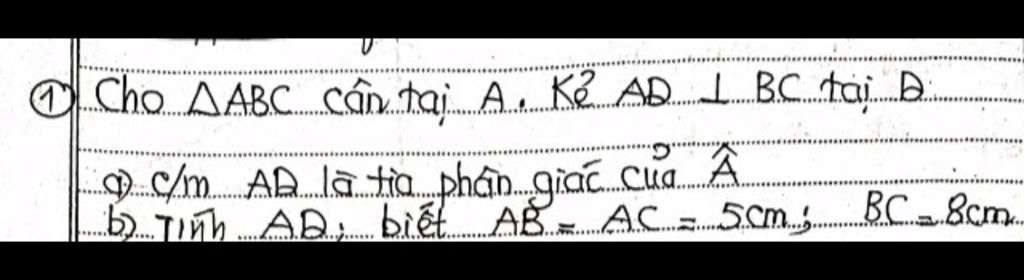 ① Cho △ABC cân tại A. Kẻ AD ⊥ BC tại D.
a) c/m AD là tia phân giác của Â
b) Tính AD; biết AB = AC = 5cm; BC = 8cm